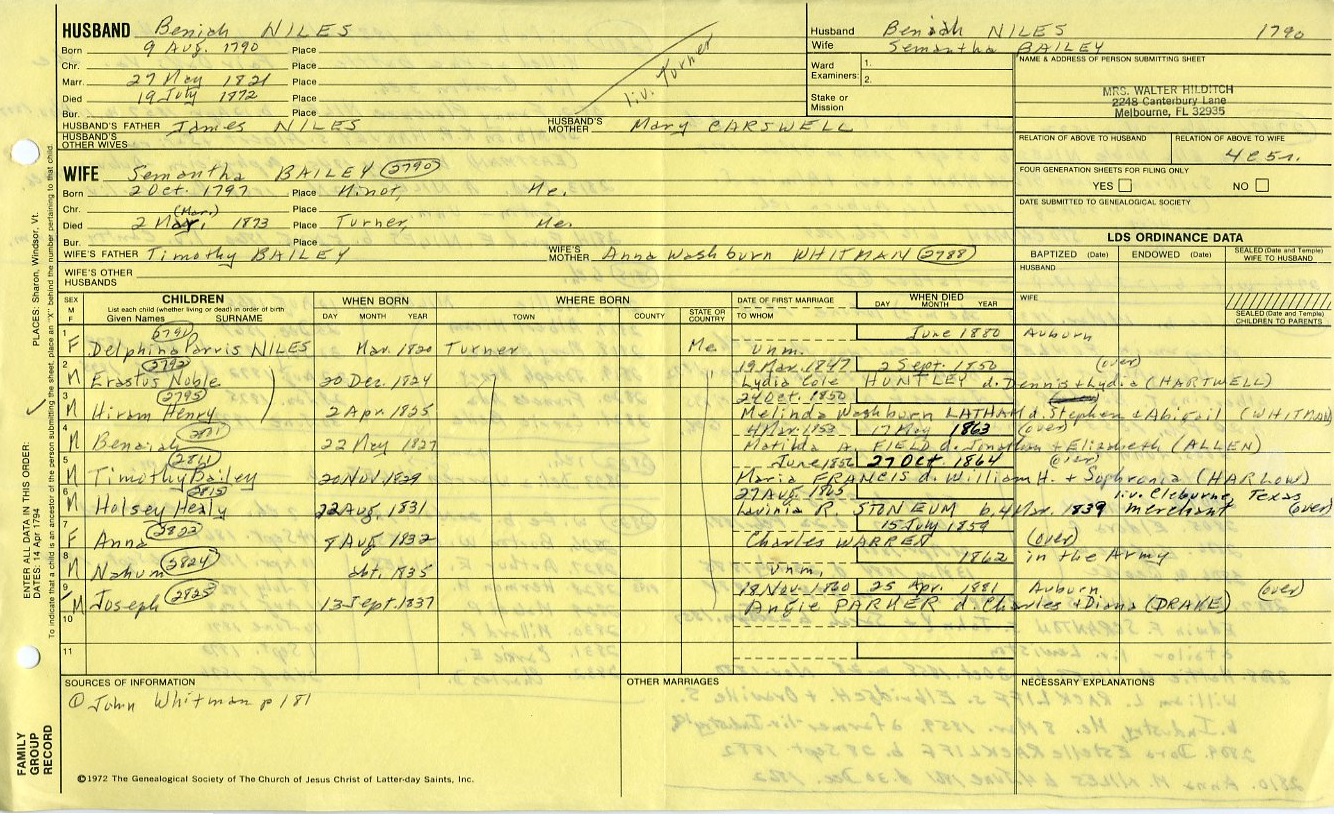 HUSBAND Beniah NILES
Born 9 Aug. 1790 Place
Chr. Place
Marr. 27 May 1821 Place
Died 19 July 1872 Place
Bur. Place
liv. Turner
HUSBAND'S FATHER James NILES HUSBAND'S MOTHER Mary CARSWELL
HUSBAND'S OTHER WIVES
Husband Beniah NILES 1790
Wife Semantha BAILEY
Ward Examiners: 1.
2.
Stake or Mission
NAME & ADDRESS OF PERSON SUBMITTING SHEET
MRS. WALTER HILDITCH
2248 Canterbury Lane
Melbourne, FL 32935
RELATION OF ABOVE TO HUSBAND RELATION OF ABOVE TO WIFE
4c5r.
FOUR GENERATION SHEETS FOR FILING ONLY
YES NO
DATE SUBMITTED TO GENEALOGICAL SOCIETY
WIFE Semantha BAILEY 2790
Born 2 Oct. 1797 Place Minot, Me.
Chr. (Mar.) Place
Died 2 Mar. 1873 Place Turner, Me.
Bur. Place
WIFE'S FATHER Timothy BAILEY WIFE'S MOTHER Anna Washburn WHITMAN 2788
WIFE'S OTHER HUSBANDS
LDS ORDINANCE DATA
BAPTIZED (Date) ENDOWED (Date) SEALED (Date and Temple) WIFE TO HUSBAND
HUSBAND
WIFE
SEALED (Date and Temple) CHILDREN TO PARENTS
SEX M F CHILDREN List each child (whether living or dead) in order of birth Given Names SURNAME WHEN BORN DAY MONTH YEAR WHERE BORN TOWN COUNTY STATE OR COUNTRY DATE OF FIRST MARRIAGE TO WHOM WHEN DIED DAY MONTH YEAR
2791 June 1880 Auburn
1 F Delphina Parris NILES Mar. 1820 Turner Me. unm.
2792 19 Mar. 1847 2 Sept. 1850 (over)
2 M Erastus Noble 20 Dec. 1824 Lydia Cole HUNTLEY d. Dennis + Lydia (HARTWELL)
2795 24 Oct. 1850
3 M Hiram Henry 2 Apr. 1825 Melinda Washburn LATHAM d. Stephen + Abigail (WHITMAN)
4 Mar. 1853 17 May 1863 (over)
4 M Benaiah 22 May 1827 Matilda A. FIELD d. Jonathan + Elizabeth (ALLEN)
June 1856 27 Oct. 1864 (over)
5 M Timothy Bailey 20 Nov. 1829 Maria FRANCIS d. William H. + Sophronia (HARLOW)
27 Aug. 1865 liv. Cleburne, Texas
6 M Holsey Healy 22 Aug. 1831 Lavinia R. STONEUM b. 4 Mar. 1839 merchant (over)
2822 15 July 1859 (over)
7 F Anna 8 Aug. 1832 Charles WARREN
2824 1862 in the Army
8 M Nahum abt. 1835 unm.
2825 18 Nov. 1860 25 Apr. 1881 Auburn (over)
9 M Joseph 13 Sept. 1837 Angie PARKER d. Charles + Diana (DRAKE)
10
11
SOURCES OF INFORMATION
① John Whitman p 181
OTHER MARRIAGES
NECESSARY EXPLANATIONS
©1972 The Genealogical Society of The Church of Jesus Christ of Latter-day Saints, Inc.
FAMILY GROUP RECORD
ENTER ALL DATA IN THIS ORDER:
DATES: 14 Apr 1794 PLACES: Sharon, Windsor, Vt.
To indicate that a child is an ancestor of the person submitting the sheet, place an "X" behind the number pertaining to that child.